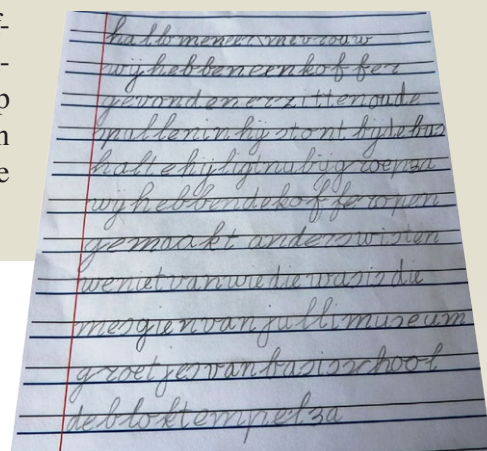 f-
-
p
n
e
hallo meneer, mevrouw
wij hebben een koffer
gevonden er zitten oude
spullen in hij stont bij de bus
halte hij ligt nu bij groep 3a
wij hebben de koffer open
gemaakt anders wisten
we niet van wie die was is die
mesgien van julli museum
groetjes van basisschool
de bloktempel 3a